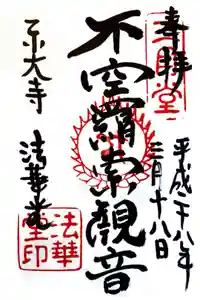 奉拝
三月堂
平成廿八年
三月十八日
不空羂索觀音
東大寺
法華堂
法華堂印